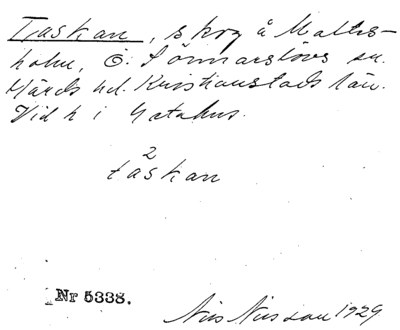 Taskan, skog å Maltes-
holm, Ö. Sönnarslövs sn.
Gärds hd. Kristianstads län.
Vid h i Gatahus.
2
táskan
Nr 5338.
Nils Nilsson 1929